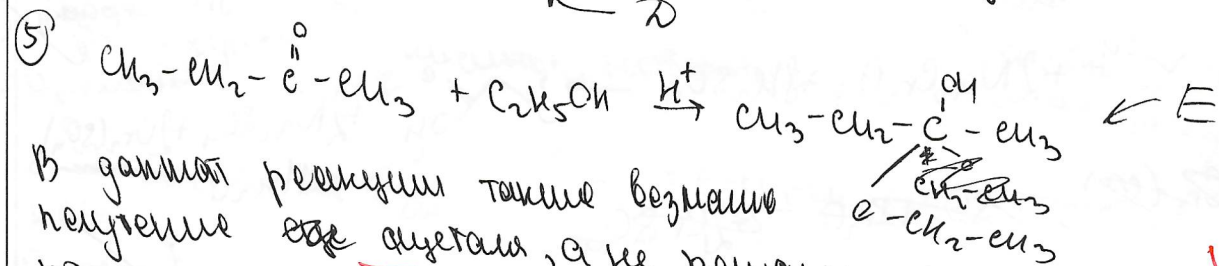 D
5
O
CH₃-CH₂-C-CH₃ + C₂H₅OH H⁺→ CH₃-CH₂-C-CH₃ ← E
OH
*
O-CH₂-CH₃
В данной реакции также возможно
получение ацеталя, а не